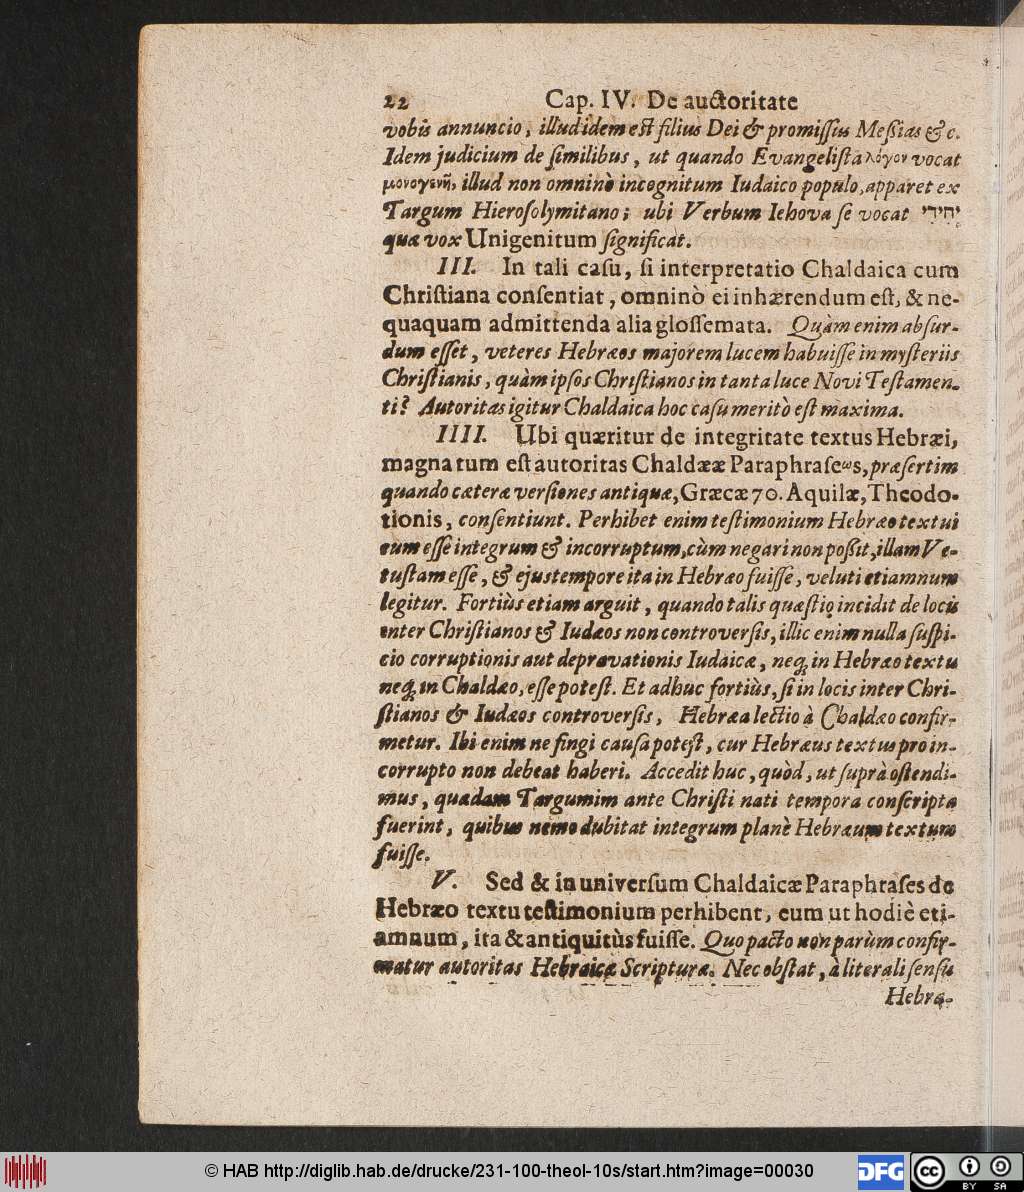 22 Cap. IV. De auctoritate
vobis annuncio, illud idem est filius Dei & promissus Messias & c.
Idem judicium de similibus, ut quando Evangelista λόγον vocat
μονογενῆ, illud non omninò incognitum Iudaico populo, apparet ex
Targum Hierosolymitano; ubi Verbum Iehova se vocat יְחִידִי
quæ vox Unigenitum significat.
III. In tali casu, si interpretatio Chaldaica cum
Christiana consentiat, omninò ei inhærendum est, & ne-
quaquam admittenda alia glossemata. Quàm enim absur-
dum esset, veteres Hebræos majorem lucem habuisse in mysteriis
Christianis, quàm ipsos Christianos in tanta luce Novi Testamen-
ti? Autoritas igitur Chaldaica hoc casu meritò est maxima.
IIII. Ubi quæritur de integritate textus Hebræi,
magna tum est autoritas Chaldææ Paraphraseωs, præsertim
quando cæteræ versiones antiquæ, Græcæ 70. Aquilæ, Theodo-
tionis, consentiunt. Perhibet enim testimonium Hebræo textui
eum esse integrum & incorruptum, cùm negari non possit, illam Ve-
tustam esse, & ejus tempore ita in Hebræo fuisse, veluti etiamnum
legitur. Fortiùs etiam arguit, quando talis quæstio incidit de locis
inter Christianos & Iudæos non controversis, illic enim nulla suspi-
cio corruptionis aut depravationis Iudaicæ, neq; in Hebræo textu
neq; in Chaldæo, esse potest. Et adhuc fortiùs, si in locis inter Chri-
stianos & Iudæos controversis, Hebræa lectio à Chaldæo confir-
metur. Ibi enim ne fingi causa potest, cur Hebræus textus pro in-
corrupto non debeat haberi. Accedit huc, quòd, ut suprà ostendi-
mus, quædam Targumim ante Christi nati tempora conscripta
fuerint, quibus nemo dubitat integrum planè Hebræum textum
fuisse.
V. Sed & in universum Chaldaicæ Paraphrases de
Hebræo textu testimonium perhibent, eum ut hodiè eti-
amnum, ita & antiquitùs fuisse. Quo pacto non parùm confir-
matur autoritas Hebraicæ Scripturæ. Nec obstat, à literali sensu
Hebræ-
© HAB http://diglib.hab.de/drucke/231-100-theol-10s/start.htm?image=00030
DFG
cc BY SA